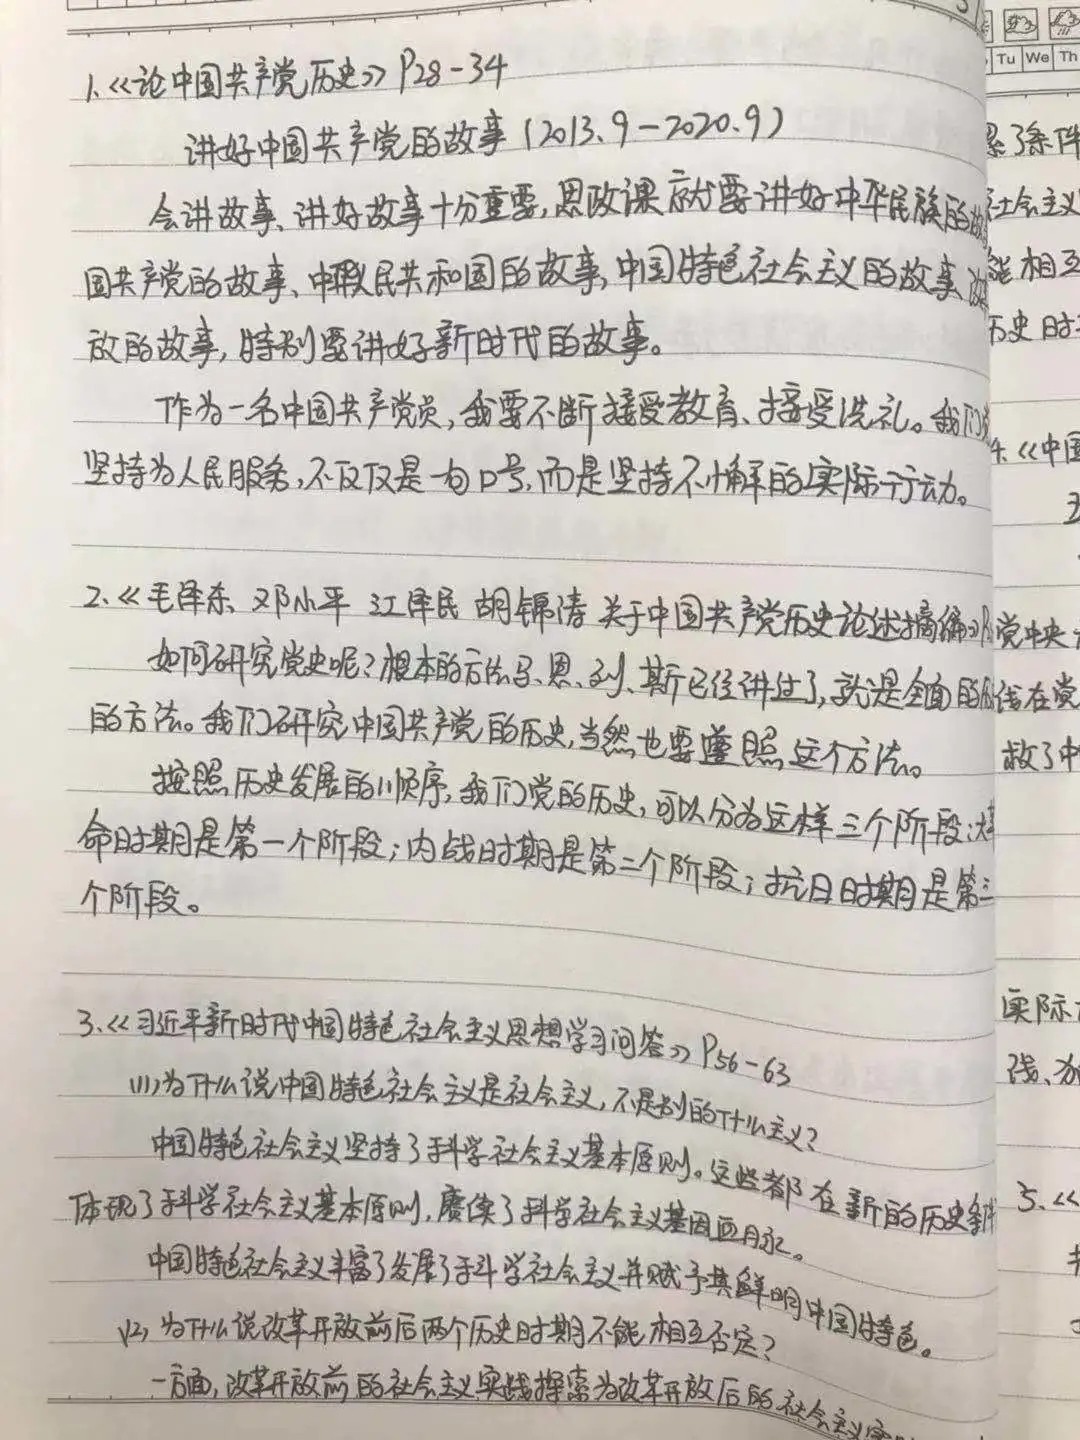 1.《论中国共产党历史》P28-34
讲好中国共产党的故事(2013.9-2020.9)
会讲故事、讲好故事十分重要,思政课就要讲好中华民族的故
国共产党的故事、中华人民共和国的故事,中国特色社会主义的故事、改
放的故事,特别要讲好新时代的故事。
作为一名中国共产党员,我要不断接受教育、接受洗礼。我们
坚持为人民服务,不仅仅是一句口号,而是坚持不懈的实际行动。
2.《毛泽东、邓小平 江泽民 胡锦涛 关于中国共产党历史论述摘编》
如何研究党史呢?根本的方法马、恩、列、斯已经讲过了,就是全面的
的方法。我们研究中国共产党的历史,当然也要遵照这个方法。
按照历史发展的顺序,我们党的历史,可以分为这样三个阶段:大
命时期是第一个阶段;内战时期是第二个阶段;抗日时期是第三
个阶段。
3.《习近平新时代中国特色社会主义思想学习问答》P56-63
(1)为什么说中国特色社会主义是社会主义,不是别的什么主义?
中国特色社会主义坚持了科学社会主义基本原则。这些都在新的历史条件
体现了科学社会主义基本原则,赓续了科学社会主义基因血脉。
中国特色社会主义丰富了发展了科学社会主义并赋予其鲜明中国特色。
(2)为什么说改革开放前后两个历史时期不能相互否定?
一方面,改革开放前的社会主义实践探索为改革开放后的社会主义实
Tu We Th
累了条件
社会主义
能相互
历史时
4.《中国
党中央
线在党
救了中
实际
线、
5.《